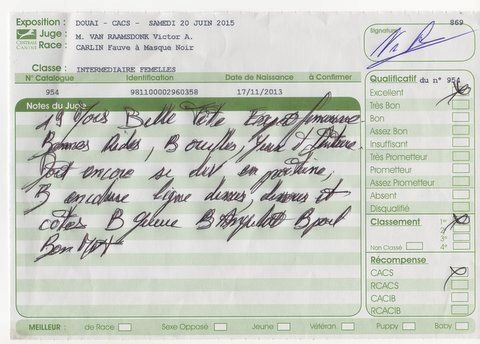 Exposition : DOUAI - CACS - SAMEDI 20 JUIN 2015
Juge : M. VAN RAAMSDONK Victor A.
Race : CARLIN Fauve à Masque Noir
CENTRALE CANINE
Classe : INTERMEDIAIRE FEMELLES
N° Catalogue Identification Date de Naissance à Confirmer
954 981100002960358 17/11/2013
Notes du Juge
19 Mois Belle Tête Expression
Bonnes rides, B Oreilles, Yeux
Doit encore se dév en poitrine,
B encolure ligne dessus, dessous et
côtés B queue B Angulat B poil
Bon
869
Signature
Qualificatif du n° 954
Excellent
Très Bon
Bon
Assez Bon
Insuffisant
Très Prometteur
Prometteur
Assez Prometteur
Absent
Disqualifié
Classement 1er
2e
3e
Non Classé 4e
Récompense
CACS
RCACS
CACIB
RCACIB
MEILLEUR : de Race Sexe Opposé Jeune Vétéran Puppy Baby